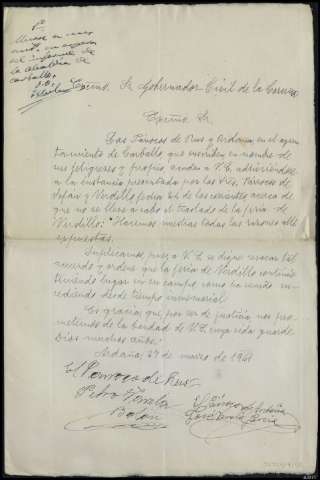 Excmo. Sr. Gobernador Civil de la Coruña
Excmo. Sr.
Los Párrocos de Rus y Ardaña en el ayun-
tamiento de Carballo, que suscriben en nombre de
sus feligreses y propio acuden a V. E. adhiriéndose
a la instancia presentada por los Sres. Párrocos de
Sofán y Verdillo fecha 24 de los corrientes acerca de
que no se lleve a cabo el traslado de la feria de
Verdillo: Hacemos nuestras todas las razones allí
expuestas.
Suplicamos pues a V. E. se digne revocar tal
acuerdo y ordene que la feria de Verdillo continúe
teniendo lugar en su campo como ha venido su-
cediendo desde tiempo inmemorial.
Es gracia, que por ser de justicia nos pro-
metemos de la bondad de V. E. cuya vida guarde
Dios muchos años.
Ardaña, 27 de marzo de 1941
El Párroco de Rus
Pedro Varela
El Párroco de Ardaña